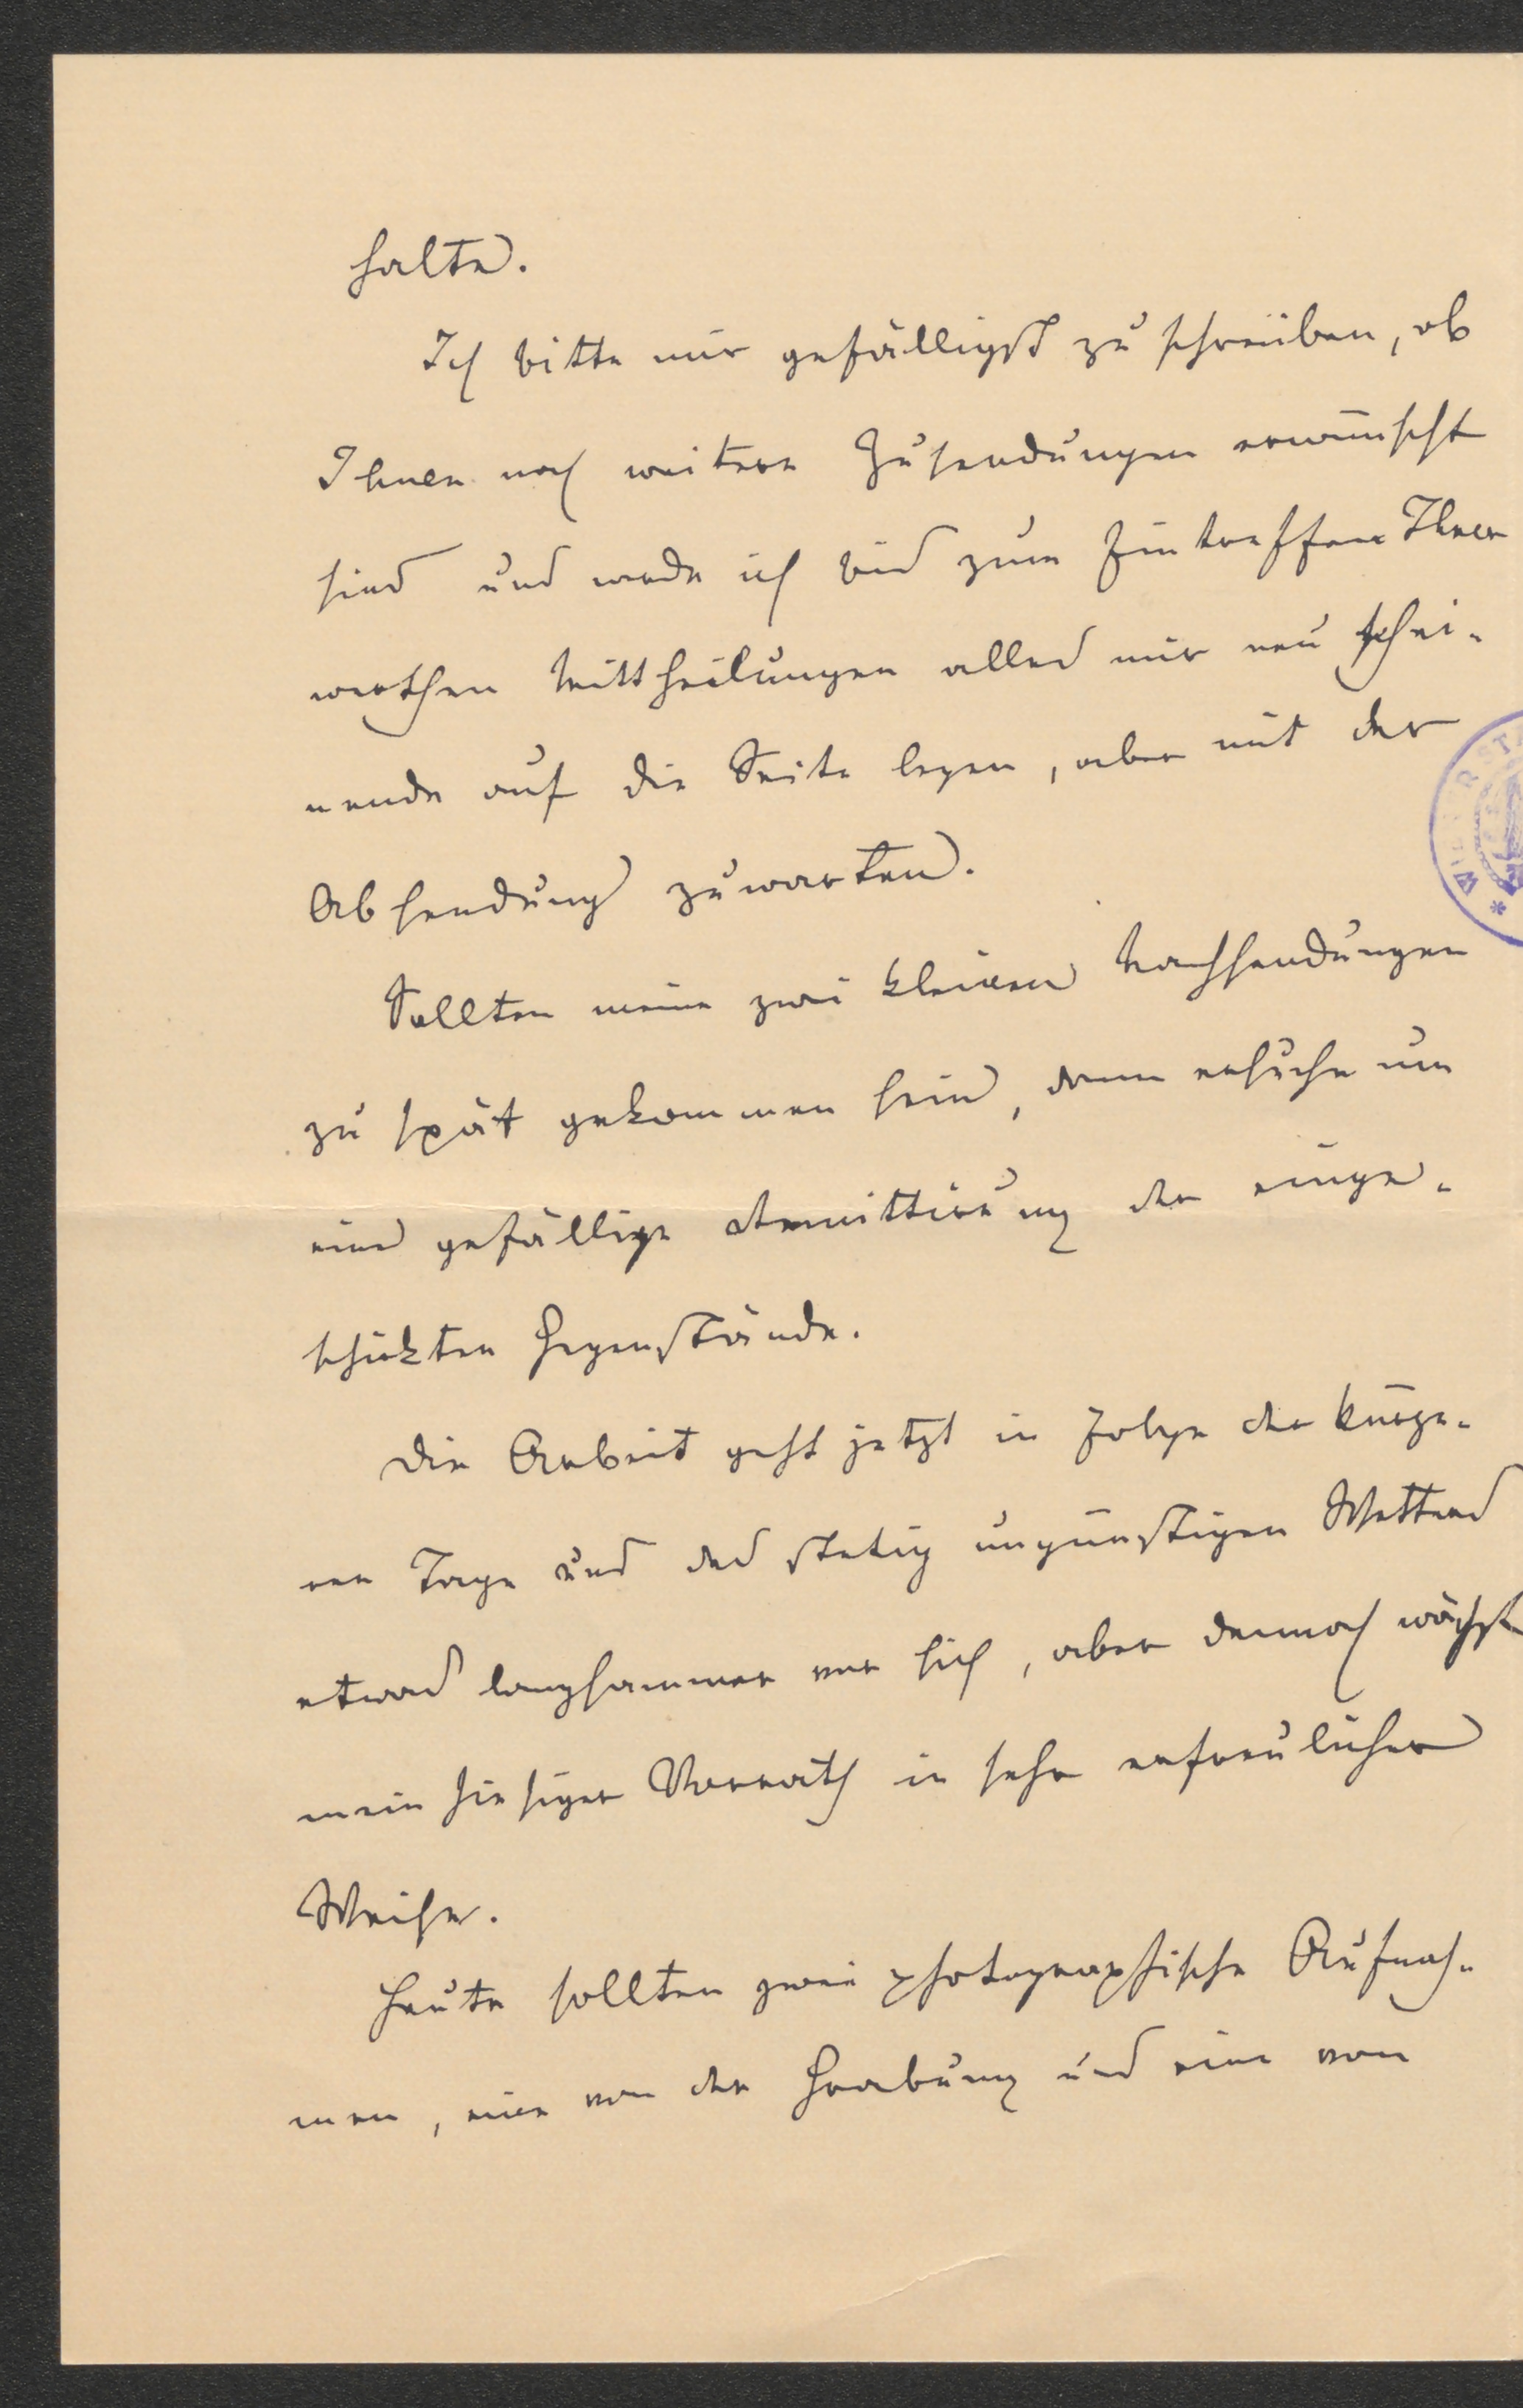 halte.
Ich bitte mir gefälligst zu schreiben, ob
Ihnen noch weitere Zusendungen erwünscht
sind und werde ich bis zum Eintreffen Ihrer
werthen Mittheilungen alles mir neu schei-
nende auf die Seite legen, aber mit der
Absendung zuwarten.
Sollten meine zwei kleinen Nachsendungen
zu spät gekommen sein, dann ersuche um
eine gefällige Remittirung der einge-
schickten Gegenstände.
Die Arbeit geht jetzt in Folge der kürze-
ren Tage und des stetig ungünstigen Wetters
etwas langsammer vor sich, aber dennoch wächst
mein hiesiger Vorrath in sehr erfreulicher
Weise.
Heute sollten zwei photographische Aufnah-
men, eine von der Grabung und eine von